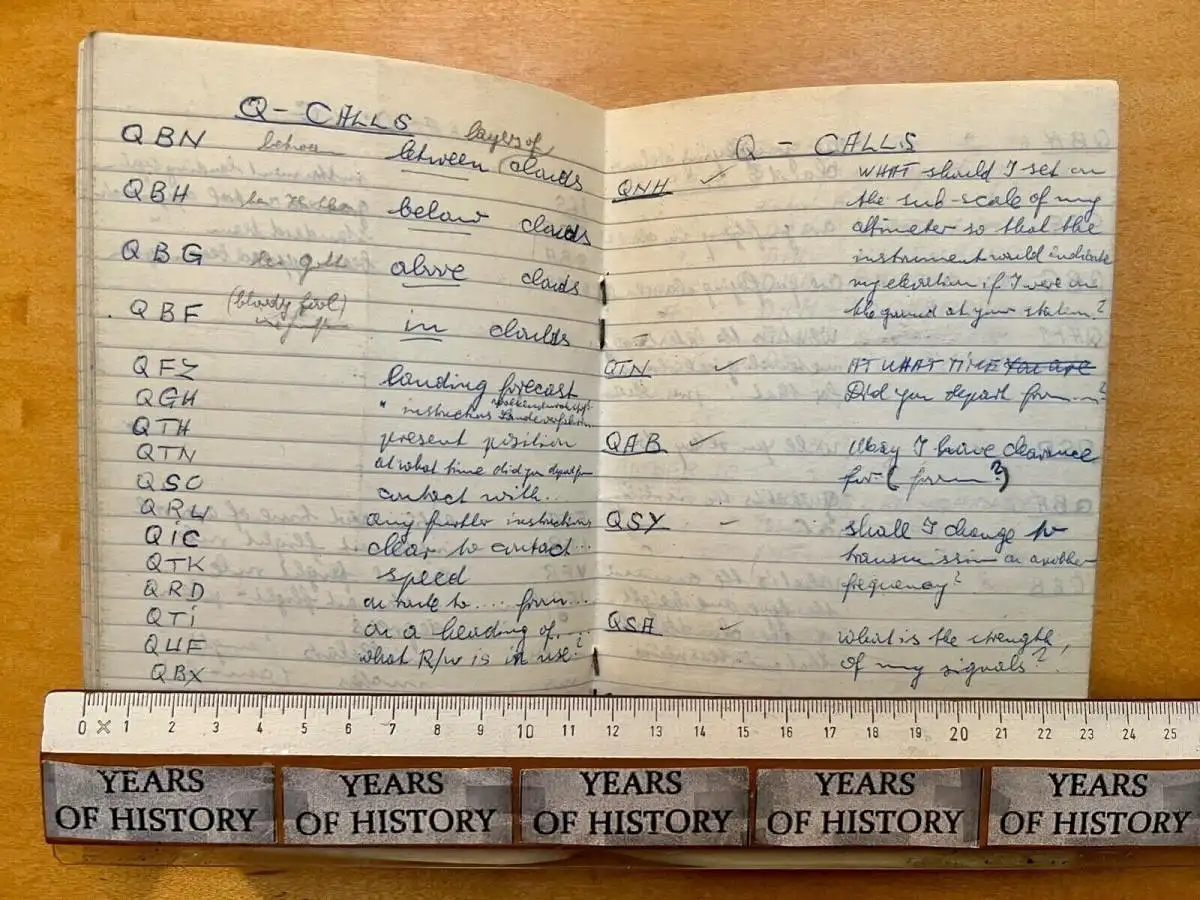 Q - CALLS
layers of
QBN between clouds
QBH below clouds
QBG above clouds
QBF (bloody fool) in clouds
QFZ landing forecast
QGH " instructions
QTH present position
QTN at what time did you depart from
QSO contact with..
QRW any further instructions
QiC clear to contact...
QTK speed
QRD en route to.... from....
QTi on a heading of....
QUF what R/w is in use?
QBX
Q - CALLS
QNH ✓ WHAT should I set on
the sub-scale of my
altimeter so that the
instrument would indicate
my elevation if I were on
the ground at your station?
QTN ✓ AT WHAT TIME You are
Did you depart from....?
QAB ✓ May I have clearance
for ( from ?)
QSY shall I change to
transmission on another
frequency?
QSA what is the strength,
of my signals?
0 1 2 3 4 5 6 7 8 9 10 11 12 13 14 15 16 17 18 19 20 21 22 23 24 25
YEARS YEARS YEARS YEARS YEARS
OF HISTORY OF HISTORY OF HISTORY OF HISTORY OF HISTORY